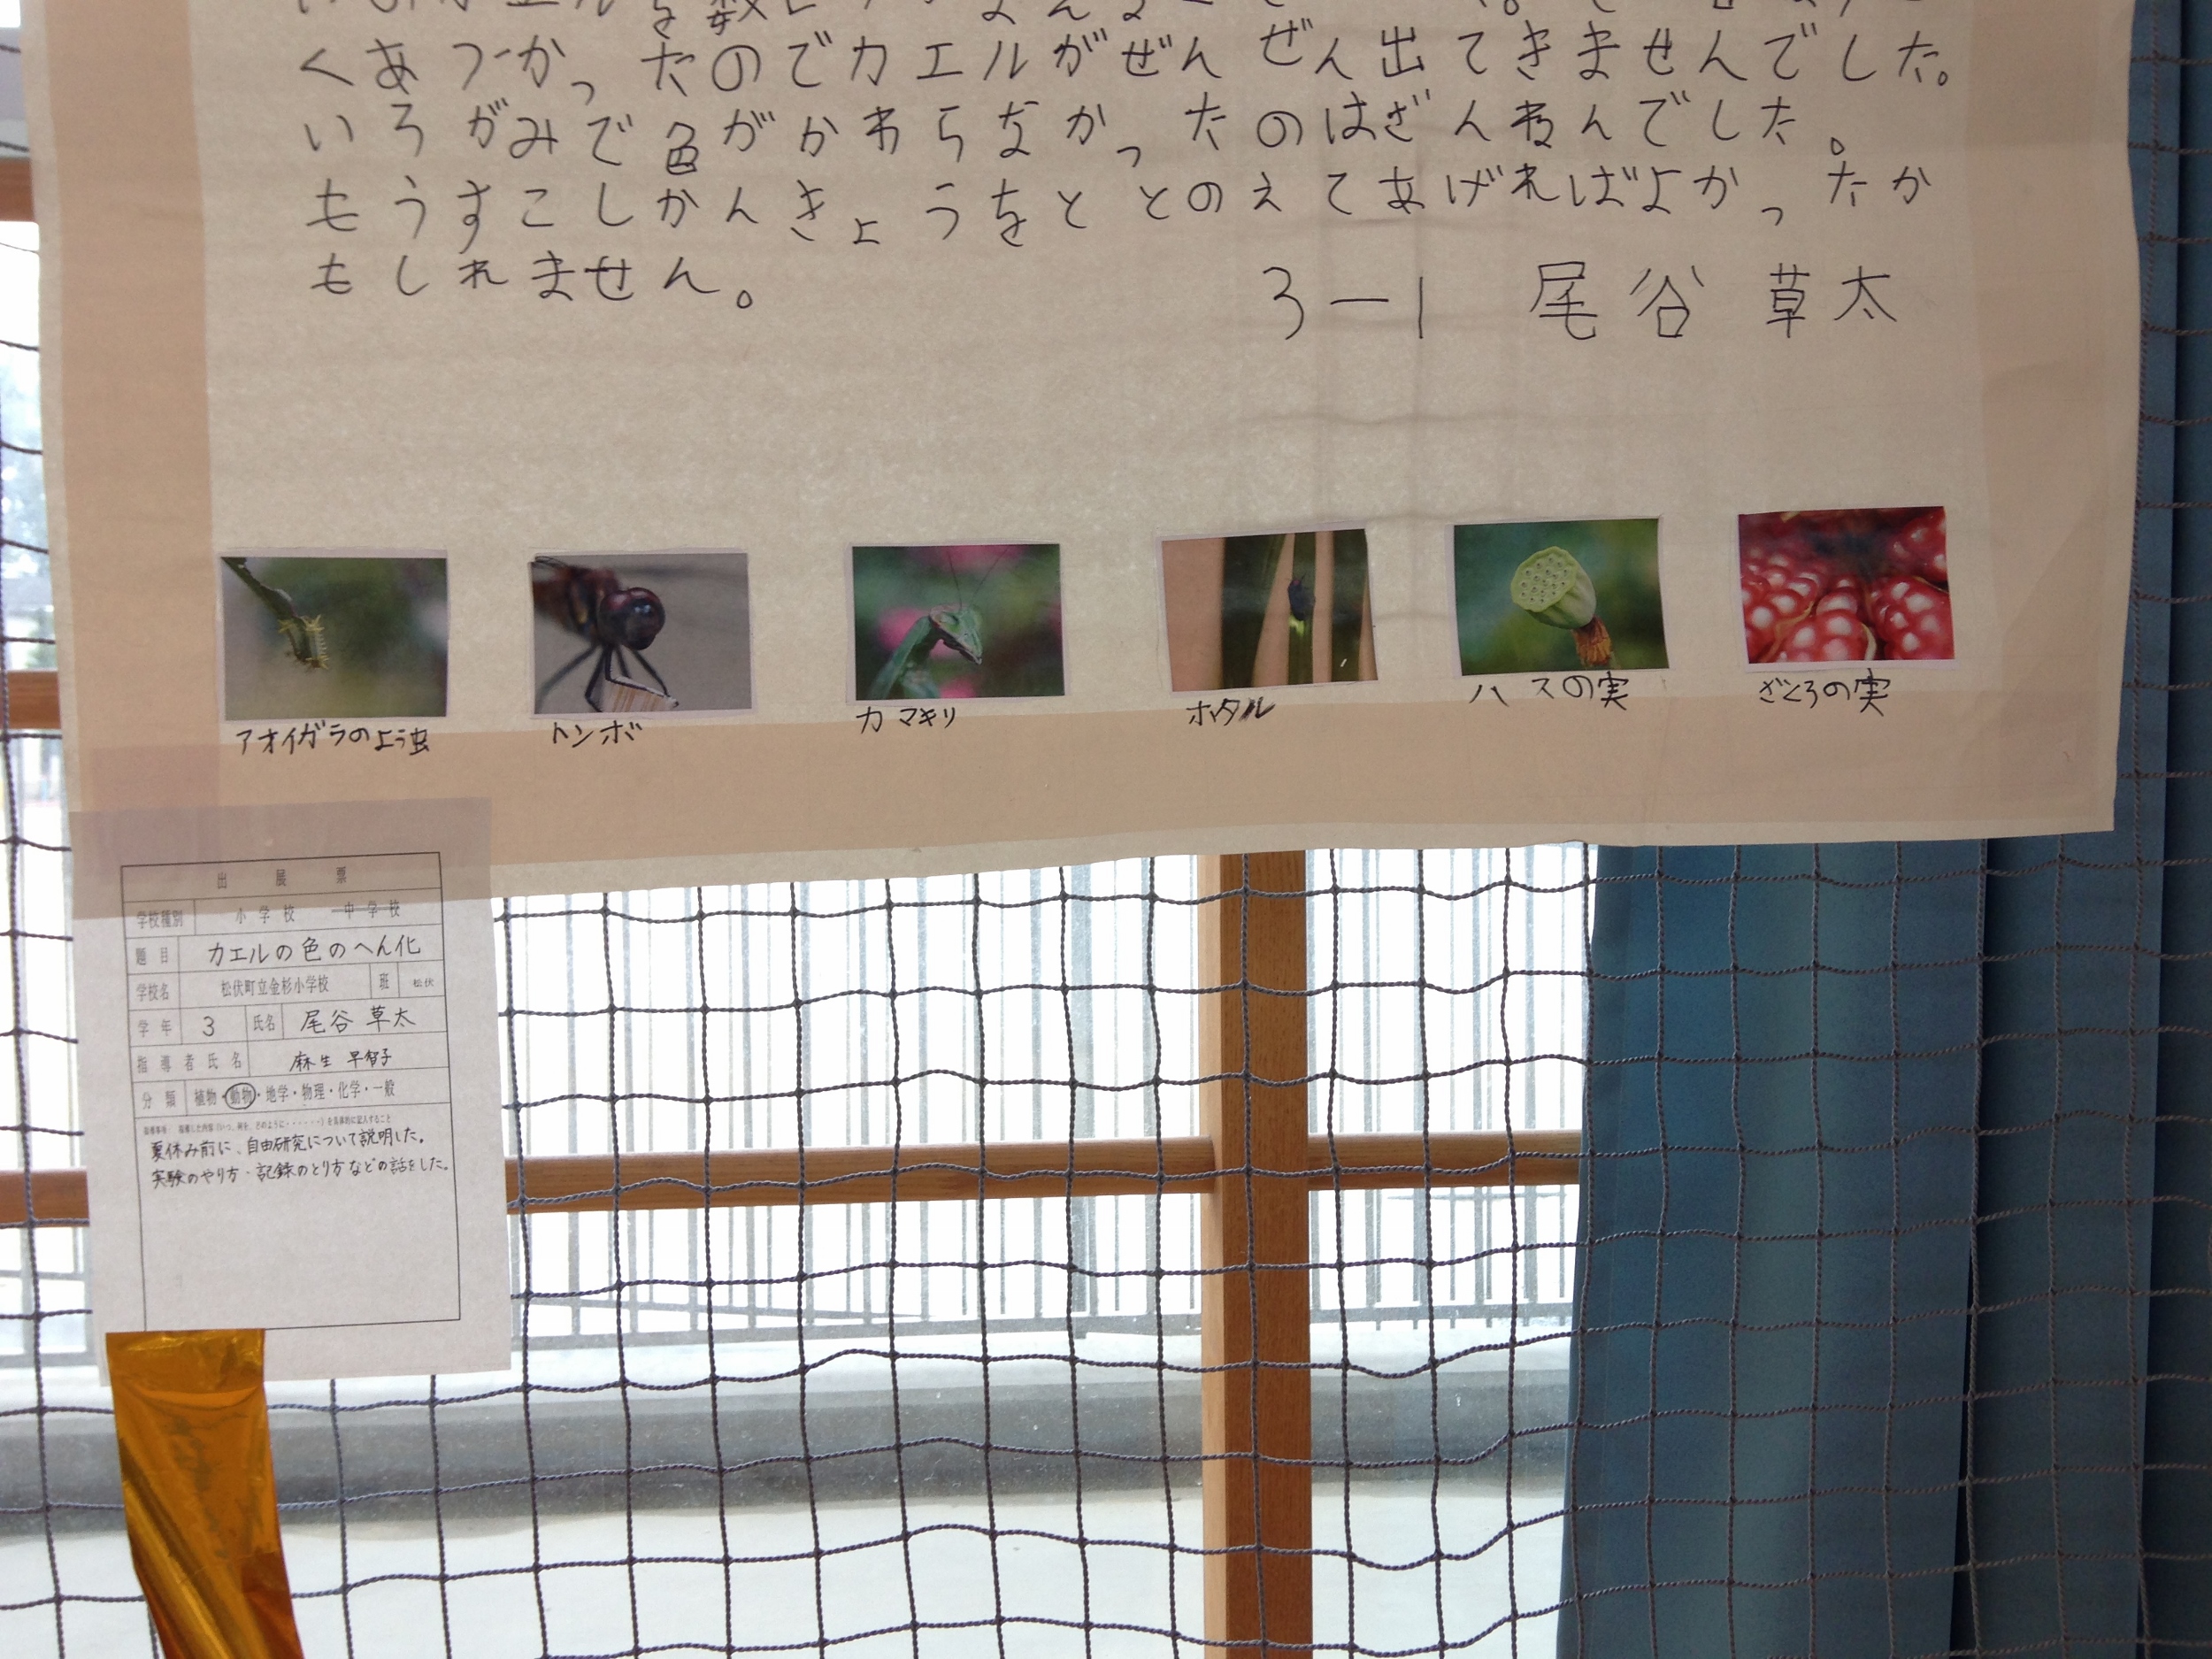 くあつかったのでカエルがぜんぜん出てきませんでした。
いろがみで色がかわらなかったのはざんねんでした。
もうすこしかんきょうをととのえてあげればよかったか
もしれません。
3-1 尾谷 草太
アオイガラのよう虫
トンボ
カマキリ
ホタル
ハスの実
ざくろの実
出展票
学校種別 小学校 中学校
題目 カエルの色のへん化
学校名 松伏町立金杉小学校 班 松伏
学年 3 氏名 尾谷 草太
指導者氏名 麻生 早智子
分類 植物・動物・地学・物理・化学・一般
夏休み前に、自由研究について説明した。
実験のやり方・記録のとり方などの話をした。